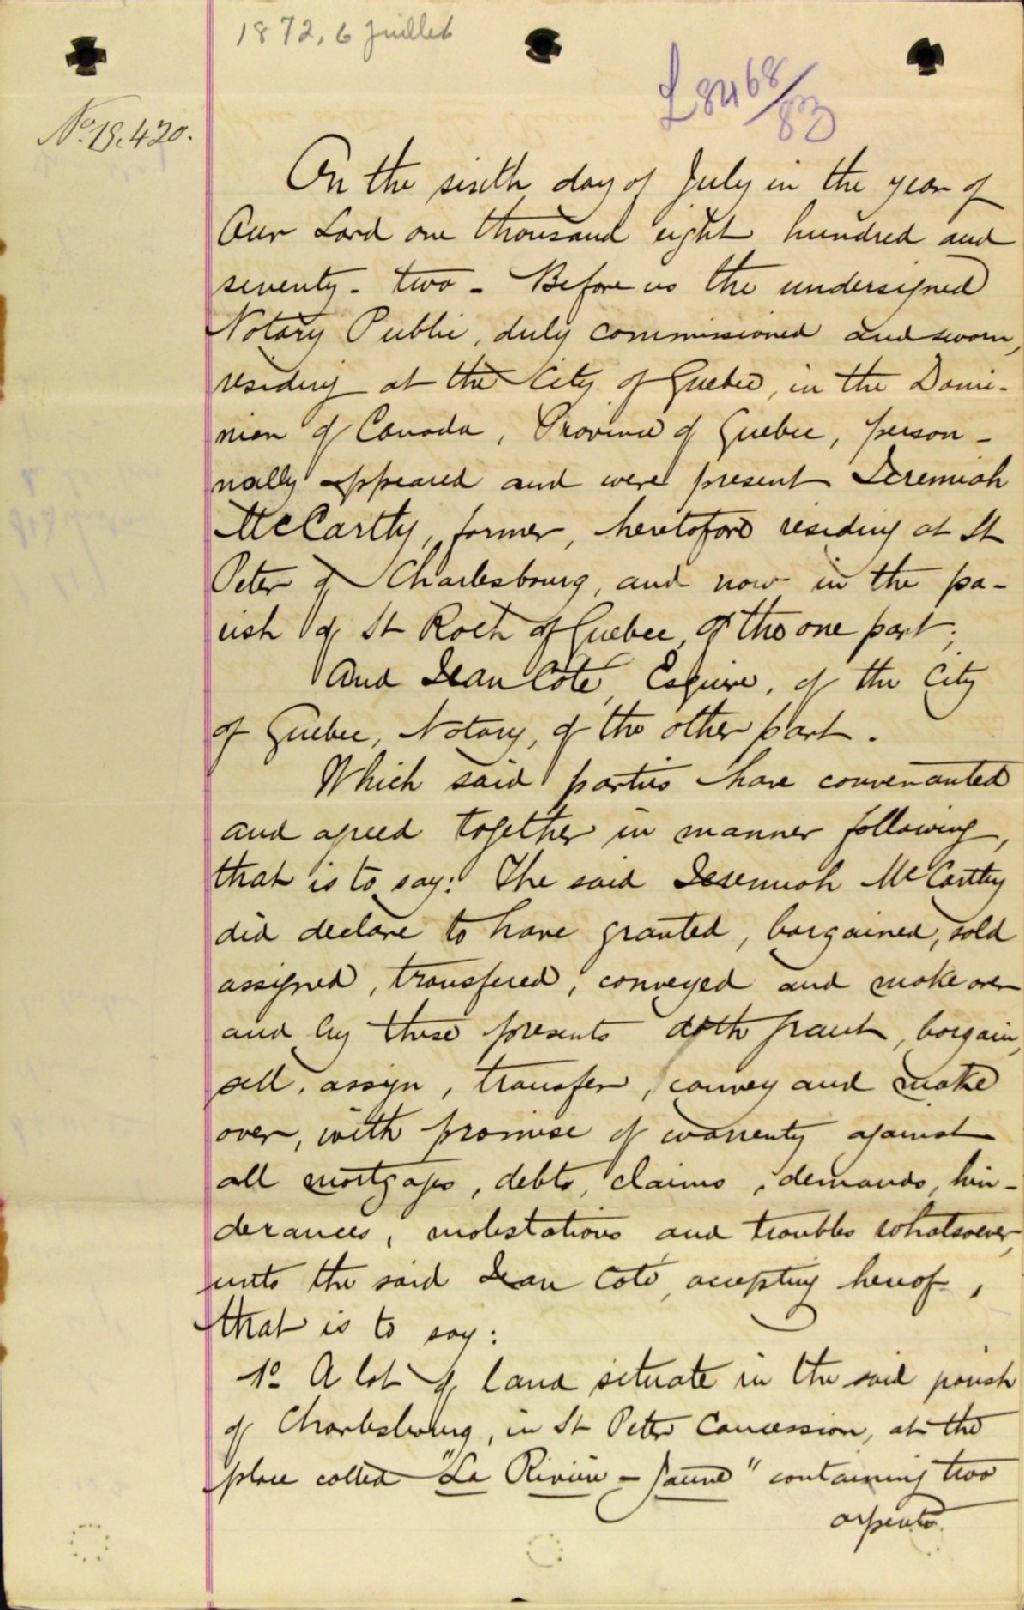 1872, 6 Juillet
£8468/83
No. 19.420.
On the sixth day of July in the year of
Our Lord one thousand eight hundred and
seventy-two - Before us the undersigned
Notary Public, duly commissioned and sworn,
residing at the City of Quebec, in the Domi-
nion of Canada, Province of Quebec, person-
nally appeared and were present Jeremiah
McCarthy, farmer, heretofore residing at St
Peter of Charlesbourg, and now in the pa-
rish of St Roch of Quebec, of the one part;
And Jean Coté, Esquire, of the City
of Quebec, Notary, of the other part.
Which said parties have convenanted
and agreed together in manner following,
that is to say: The said Jeremiah McCarthy
did declare to have granted, bargained, sold
assigned, transfered, conveyed and make over
and by these presents doth grant, bargain,
sell, assign, transfer, convey and make
over, with promise of warrenty against
all mortgages, debts, claims, demands, hin-
derances, molestations and troubles whatsoever,
unto the said Jean Coté, accepting hereof,
that is to say:
1o A lot of land situate in the said parish
of Charlesbourg, in St Peter Concession, at the
place called "La Rivière-Jaune" containing two
arpents